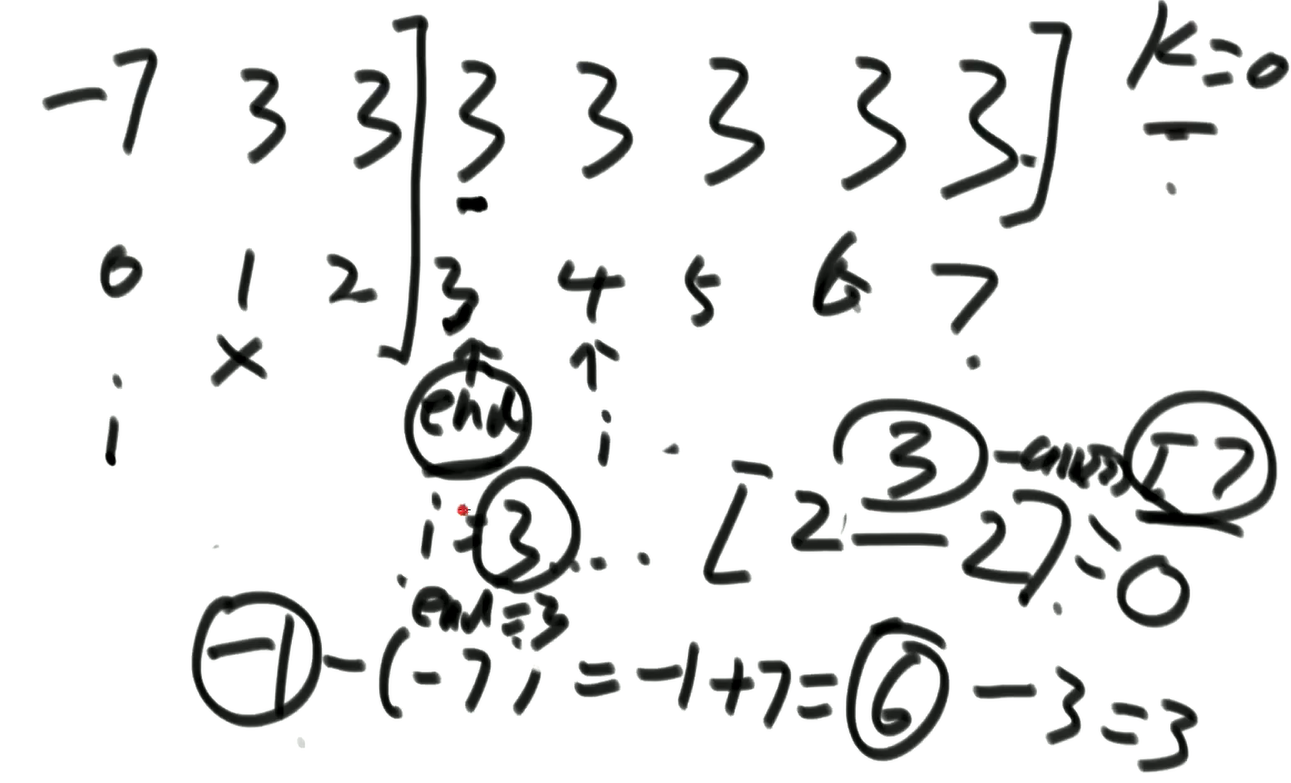 -7 3 3 ] 3 3 3 3 3 ] K=0
0 1 2 3 4 5 6 7
x
i end i
3 - [7
i=3 [2 - 2]=0
end=3
-1-(-7)=-1+7=6-3=3